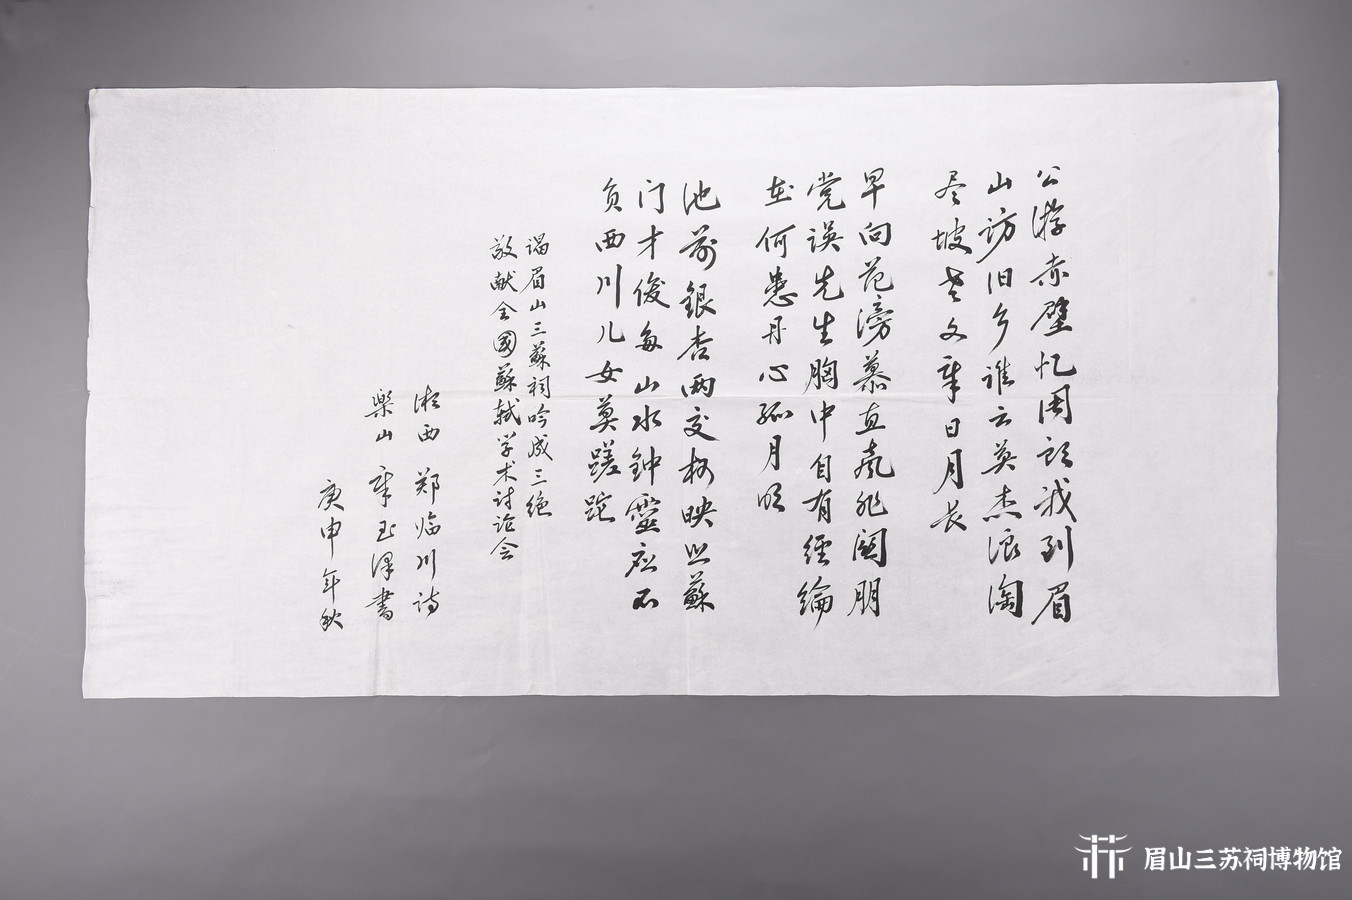 公游赤壁忆周郎我到眉
山访旧乡谁云英杰浪淘
尽坡老文章日月长
早向范滂慕直气纷阋朋
党误先生胸中自有经纶
在何患丹心孤月明
池前银杏两交柯映照苏
门才俊多山水钟灵应不
负西川儿女莫蹉跎
谒眉山三苏祠吟成三绝
敬献全國苏轼学术讨论会
湘西 郑临川诗
樂山 章玉泽書
庚申年秋
眉山三苏祠博物馆